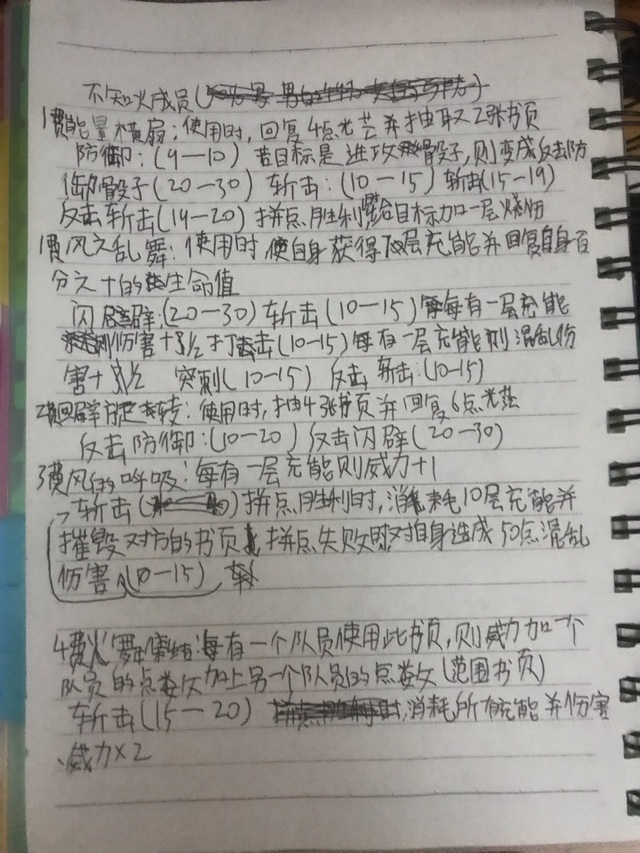 不知火成员(
1费能量横扇：使用时，回复4点光芒并抽取2张书页
防御：(4—10) 若目标是进攻骰子，则变成反击防
御骰子(20—30) 斩击：(10—15) 斩击(15—19)
反击斩击(14—20) 拼点胜利给目标加一层烧伤
1费风之乱舞：使用时使自身获得 层充能并回复自身百
分之十的生命值
闪避：(20—30) 斩击(10—15) 每有一层充能
则伤害+ 打击(10—15) 每有一层充能则混乱伤
害+ 突刺(10—15) 反击斩击：(10—15)
2费回辟旋转：使用时，抽4张书页并回复6点光芒
反击防御：(10—20) 反击闪避(20—30)
3费风的呼吸：每有一层充能则威力+1
斩击( ) 拼点胜利时，消耗10层充能并
摧毁对方的书页 拼点失败时对自身造成50点混乱
伤害 (10—15)
4费火舞集结：每有一个队员使用此书页，则威力加一个
队员的点数 加上另一个队员的点数 (范围书页)
斩击(15—20) 消耗所有充能并伤害
威力×2